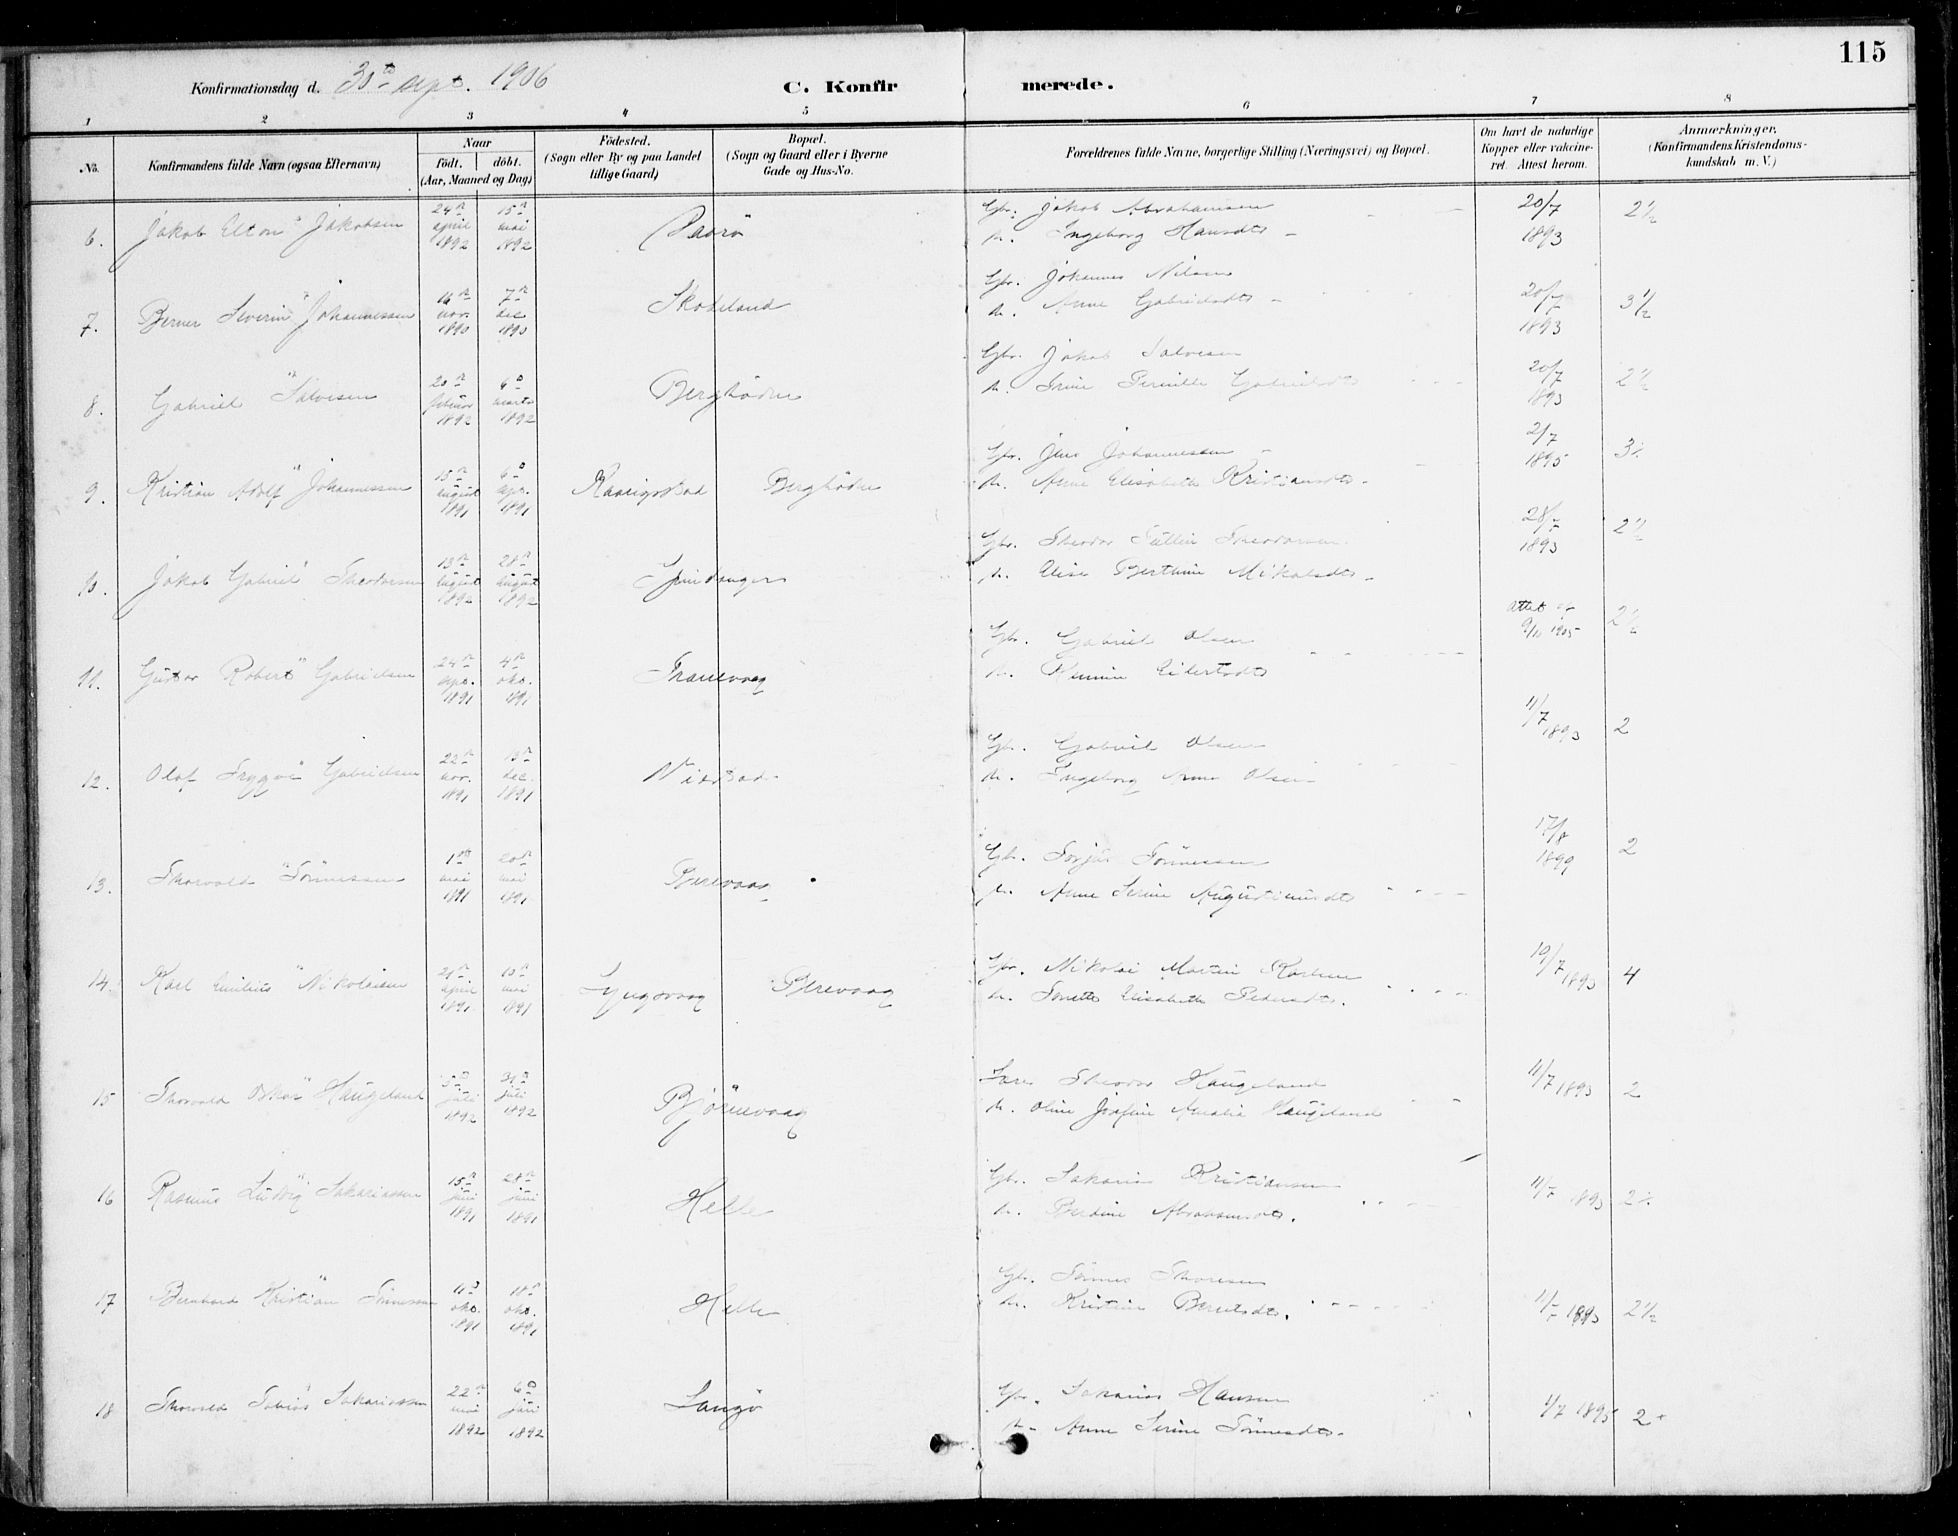 115
Konfirmationsdag d. 30te sept. 1906
C. Konfirmerede.
1 2 3 4 5 6 7 8
No.
Konfirmandens fulde Navn (ogsaa Efternavn)
Naar
födt. döbt.
(Aar, Maaned og Dag)
Födested.
(Sogn eller By og paa Landet
tillige Gaard)
Bopæl.
(Sogn og Gaard eller i Byerne
Gade og Hus-No.
Forældrenes fulde Navne, borgerlige Stilling (Næringsvei) og Bopæl.
Om havt de naturlige
Kopper eller vakcine-
ret. Attest herom.
Anmærkninger.
(Konfirmandens Kristendoms-
kundskab m. V.)
6. Jakob Elton Jakobsen 24de april 1892 15de mai 1892
Gbr. Jakob Abrahamsen
h. Ingeborg Hansdtr
20/7 1893 2½
7. Berner Severin Johannessen 16de nov. 1890 7de dec 1890 Skodeland
Gbr. Johannes Nilsen
h. Anne Gabrielsdtr
20/7 1893 3½
8. Gabriel Salvesen 20de februar 1892 6te marts 1892
Gbr. Jakob Salvesen
h. Trine Pernille Gabrielsdtr
20/7 1893 2½
9. Kristian Adolf Johannessen 15de august 1891
Gbr. Jens Johannessen
h. Anne Elisabeth Kristiansdtr.
2/7 1895
10. Jakob Gabriel Theodorsen 13de august 1892 28de august 1892 Spindsanger
Gbr. Theodor Theodorsen
h. Elise Berthine Mikalsdtr.
28/7 1893 2½
11. Gustav Robert Gabrielsen 24de 1891 4de okt. 1891 Tranevaag
Gbr. Gabriel Olsen
h. Eilertsdtr
Attest 1905 2½
12. Olaf Trygve Gabrielsen 22de nov. 1891 13de dec. 1891
Gbr. Gabriel Olsen
h. Ingeborg Anna Olsen
11/7 1893 2
13. Thorvald Tönnessen 1ste mai 1891 20de mai 1891 Berevaag
Gbr. Torjus Tönnessen
h. Anne Serine Augustinusdtr
17/8 1899 2
14. Karl Emilius Nikolaisen 21de april 1891 10de mai 1891 Lyngsvaag Berevaag
Gbr. Nikolai Martin Karlsen
h. Tonette Elisabeth Pedersdtr.
19/7 1893 4
15 Thorvald Oskar Haugeland 5te juli 1892 31te juli 1892 Björnevaag
Lærer Theodor Haugeland
h. Oline Josefine Amalia Haugeland
11/7 1893 2
16 Rasmus Ludvig Sakariassen 15de juni 1891 28de juni 1891 Helle
Gbr. Sakarias Kristiansen
h. Berdine Abrahamsdtr.
11/7 1893
17 Bernhard Kristian Tönnessen okt. 1891 18de okt. 1891 Helle
Gbr. Tönnes Thoresen
h. Kristine Berntsdtr.
1893 2½
18 Thorvald Tobias Sakariassen 22de mai 1892 6te juni 1892 Langö
Gbr. Sakarias Hansen
h. Anne Serine Tönnesdtr.
1/7 1895 2+